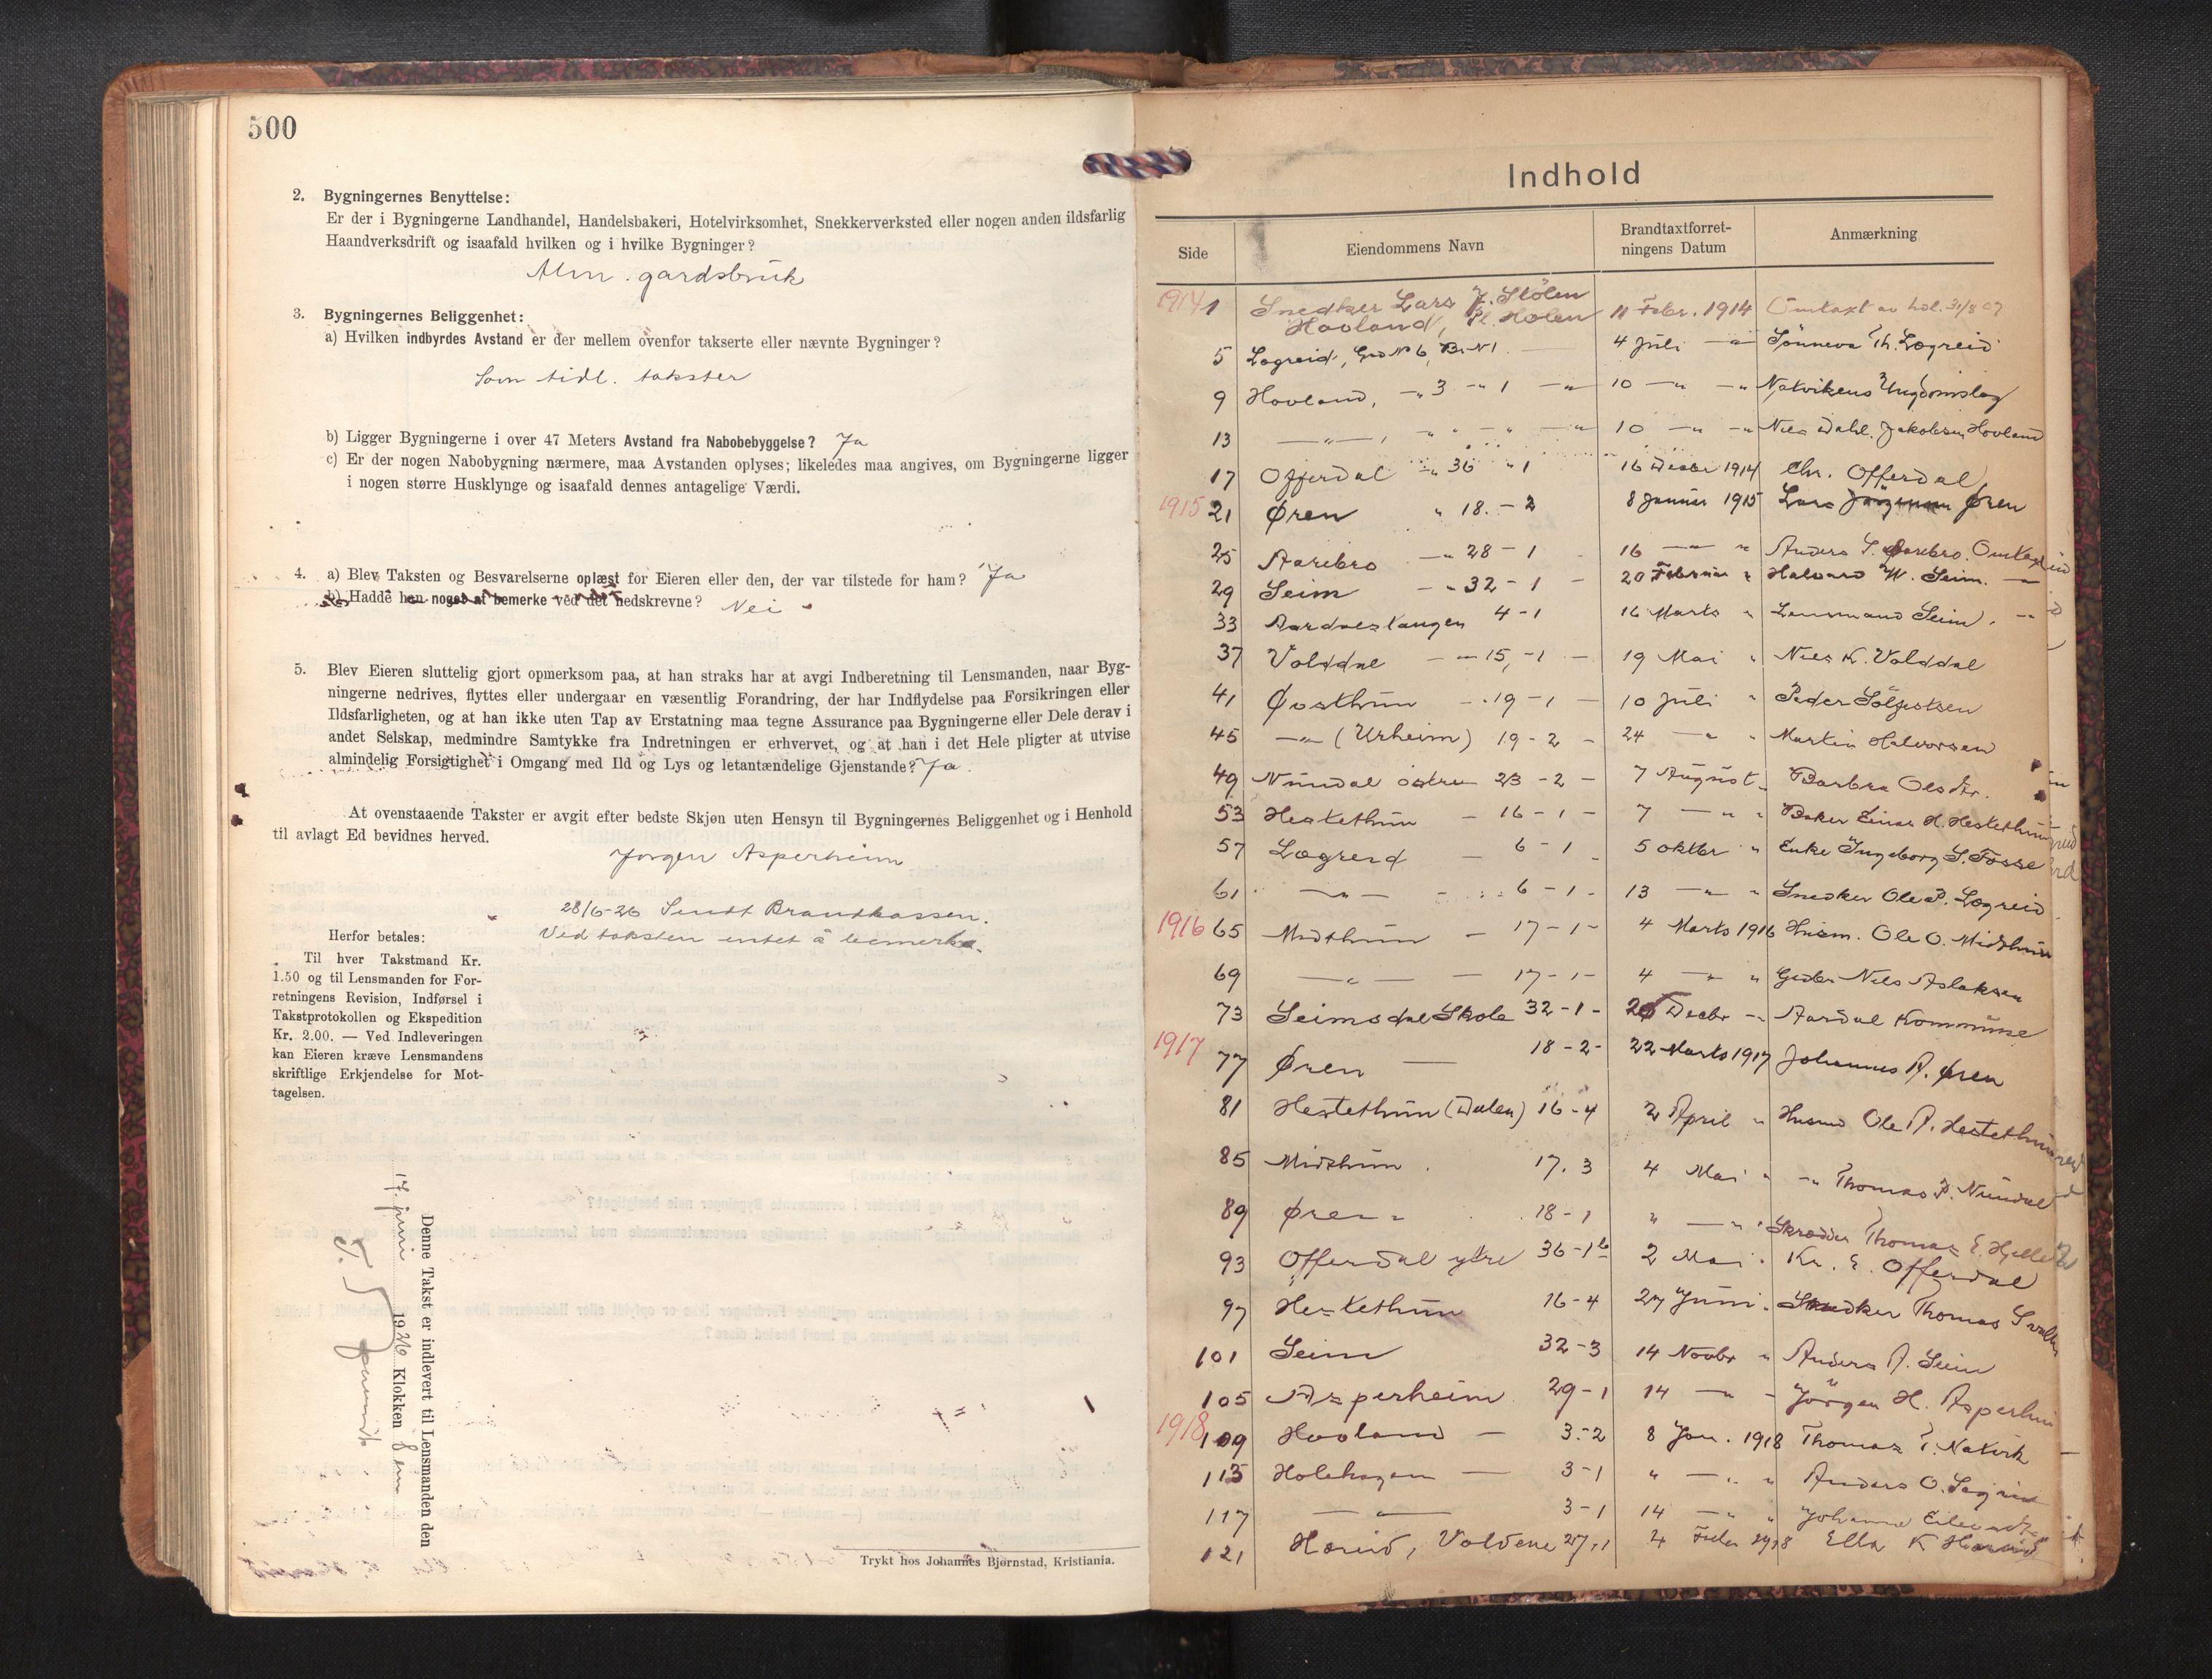 500
2. Bygningernes Benyttelse:
Er der i Bygningerne Landhandel, Handelsbakeri, Hotelvirksomhet, Snekkerverksted eller nogen anden ildsfarlig
Haandverksdrift og isaafald hvilken og i hvilke Bygninger?
Alm. gardsbruk
3. Bygningernes Beliggenhet:
a) Hvilken indbyrdes Avstand er der mellem ovenfor takserte eller nævnte Bygninger?
Som tidl. takster
b) Ligger Bygningerne i over 47 Meters Avstand fra Nabobebyggelse? Ja
c) Er der nogen Nabobygning nærmere, maa Avstanden oplyses; likeledes maa angives, om Bygningerne ligger
i nogen større Husklynge og isaafald dennes antagelige Værdi.
4. a) Blev Taksten og Besvarelserne oplæst for Eieren eller den, der var tilstede for ham? Ja
b) Hadde han noget at bemerke ved det nedskrevne? Nei
5. Blev Eieren sluttelig gjort opmerksom paa, at han straks har at avgi Indberetning til Lensmanden, naar Byg-
ningerne nedrives, flyttes eller undergaar en væsentlig Forandring, der har Indflydelse paa Forsikringen eller
Ildsfarligheten, og at han ikke uten Tap av Erstatning maa tegne Assurance paa Bygningerne eller Dele derav i
andet Selskap, medmindre Samtykke fra Indretningen er erhvervet, og at han i det Hele pligter at utvise
almindelig Forsigtighet i Omgang med Ild og Lys og letantændelige Gjenstande? Ja.
At ovenstaaende Takster er avgit efter bedste Skjøn uten Hensyn til Bygningernes Beliggenhet og i Henhold
til avlagt Ed bevidnes herved.
Jørgen Asperheim
28/6-26 Sendt Brandkassen.
Ved taksten intet å bemerke.
Herfor betales:
Til hver Takstmand Kr.
1.50 og til Lensmanden for For-
retningens Revision, Indførsel i
Takstprotokollen og Ekspedition
Kr. 2.00. — Ved Indleveringen
kan Eieren kræve Lensmandens
skriftlige Erkjendelse for Mot-
tagelsen.
Denne Takst er indlevert til Lensmanden den
17. juni 1926 Klokken
Trykt hos Johannes Bjørnstad, Kristiania.
Indhold
Side Eiendommens Navn Brandtaxtforret-
ningens Datum Anmærkning
1914 1 Snedker Lars J. Stölen
Hovland, Pl. Holen 11 Febr. 1914 Omtaxt av hol. 31/8 07
5 Lægreid, Grd No 6, B. N 1. 4 Juli — " — Sönneva Th. Lægreid
9 Hovland, — " 3 — " 1 — " 10 — " — " Natvikens Ungdomslag
13 — " —, " " — " — " 10 — " — " Nils Dahl. Jakobsen Hovland
17 Offerdal — " 36 " 1 16 Decbr 1914 Chr. Offerdal
1915 21 Øren " 18. – 2 8 Januar 1915 Lars Øren
25 Aarebro — " 28 – 1 16 — " — " Anders S. Aarebro. Omtaxt
29 Seim — " 32 – 1 20 Februar " Halvard W. Seim. —
33 Aardalstangen 4 – 1 16 Marts " Lensmand Seim. — "
37 Volddal — " 15, – 1 — 19 Mai " Nils K. Volddal
41 Øvsthun — " 19 – 1 — 10 Juli " Peder Sölfestsen
45 — " — (Urheim) 19 – 2 – 24 — " — " Martin Halvorsen
49 Nundal östre 23 – 2 – 7 August Barbra Olsdtr.
53 Hestethun — 16 – 1 – 7 — " — " Baker Einar H. Hestethun
57 Lægreid — 6 – 1 – 5 oktbr " Enke Ingeborg S. Fosse
61 — " — – 6 – 1 – 13 — " — " Snedker Ole P. Lægreid
1916 65 Midthun — 17 – 1 – 4 Marts 1916 Husm. Ole O. Midthun
69 — " — — 17 – 1 – 4 — " — " Nils Aslaksen
73 Seimsdal Skole 32 – 1 – 20 Decbr — " Aardal Kommune
1917 77 Øren — 18 – 2 – 22 Marts 1917 Johannes A. Øren
81 Hestethun (Dalen) 16 – 4 2 April " Husmd Ole A. Hestethun
85 Midthun 17. 3 4 Mai " — " Thomas P. Nundal
89 Øren 18 – 1 " — " — " Skrædder Thomas E. Hjelle
93 Offerdal ytre 36 – 1 2 Mai " Kr. E. Offerdal
97 Hestethun 16 – 4 27 Juni " Snedker Thomas
101 Seim 32 – 3 14 Novbr " Anders A. Seim
105 Asperheim 29 – 1 14 — " — Jörgen H. Asperheim
1918 109 Hovland — 3. – 2 8 Jan. 1918 Thomas T. Natvik
113 Holehagen — 3 – 1 " — " — " Anders O. Lægreid
117 — " — 3 – 1 14 — " — " Johanne
121 Hæreid, Voldene 27, 1 4 Febr 1918 Ella K Hæreid